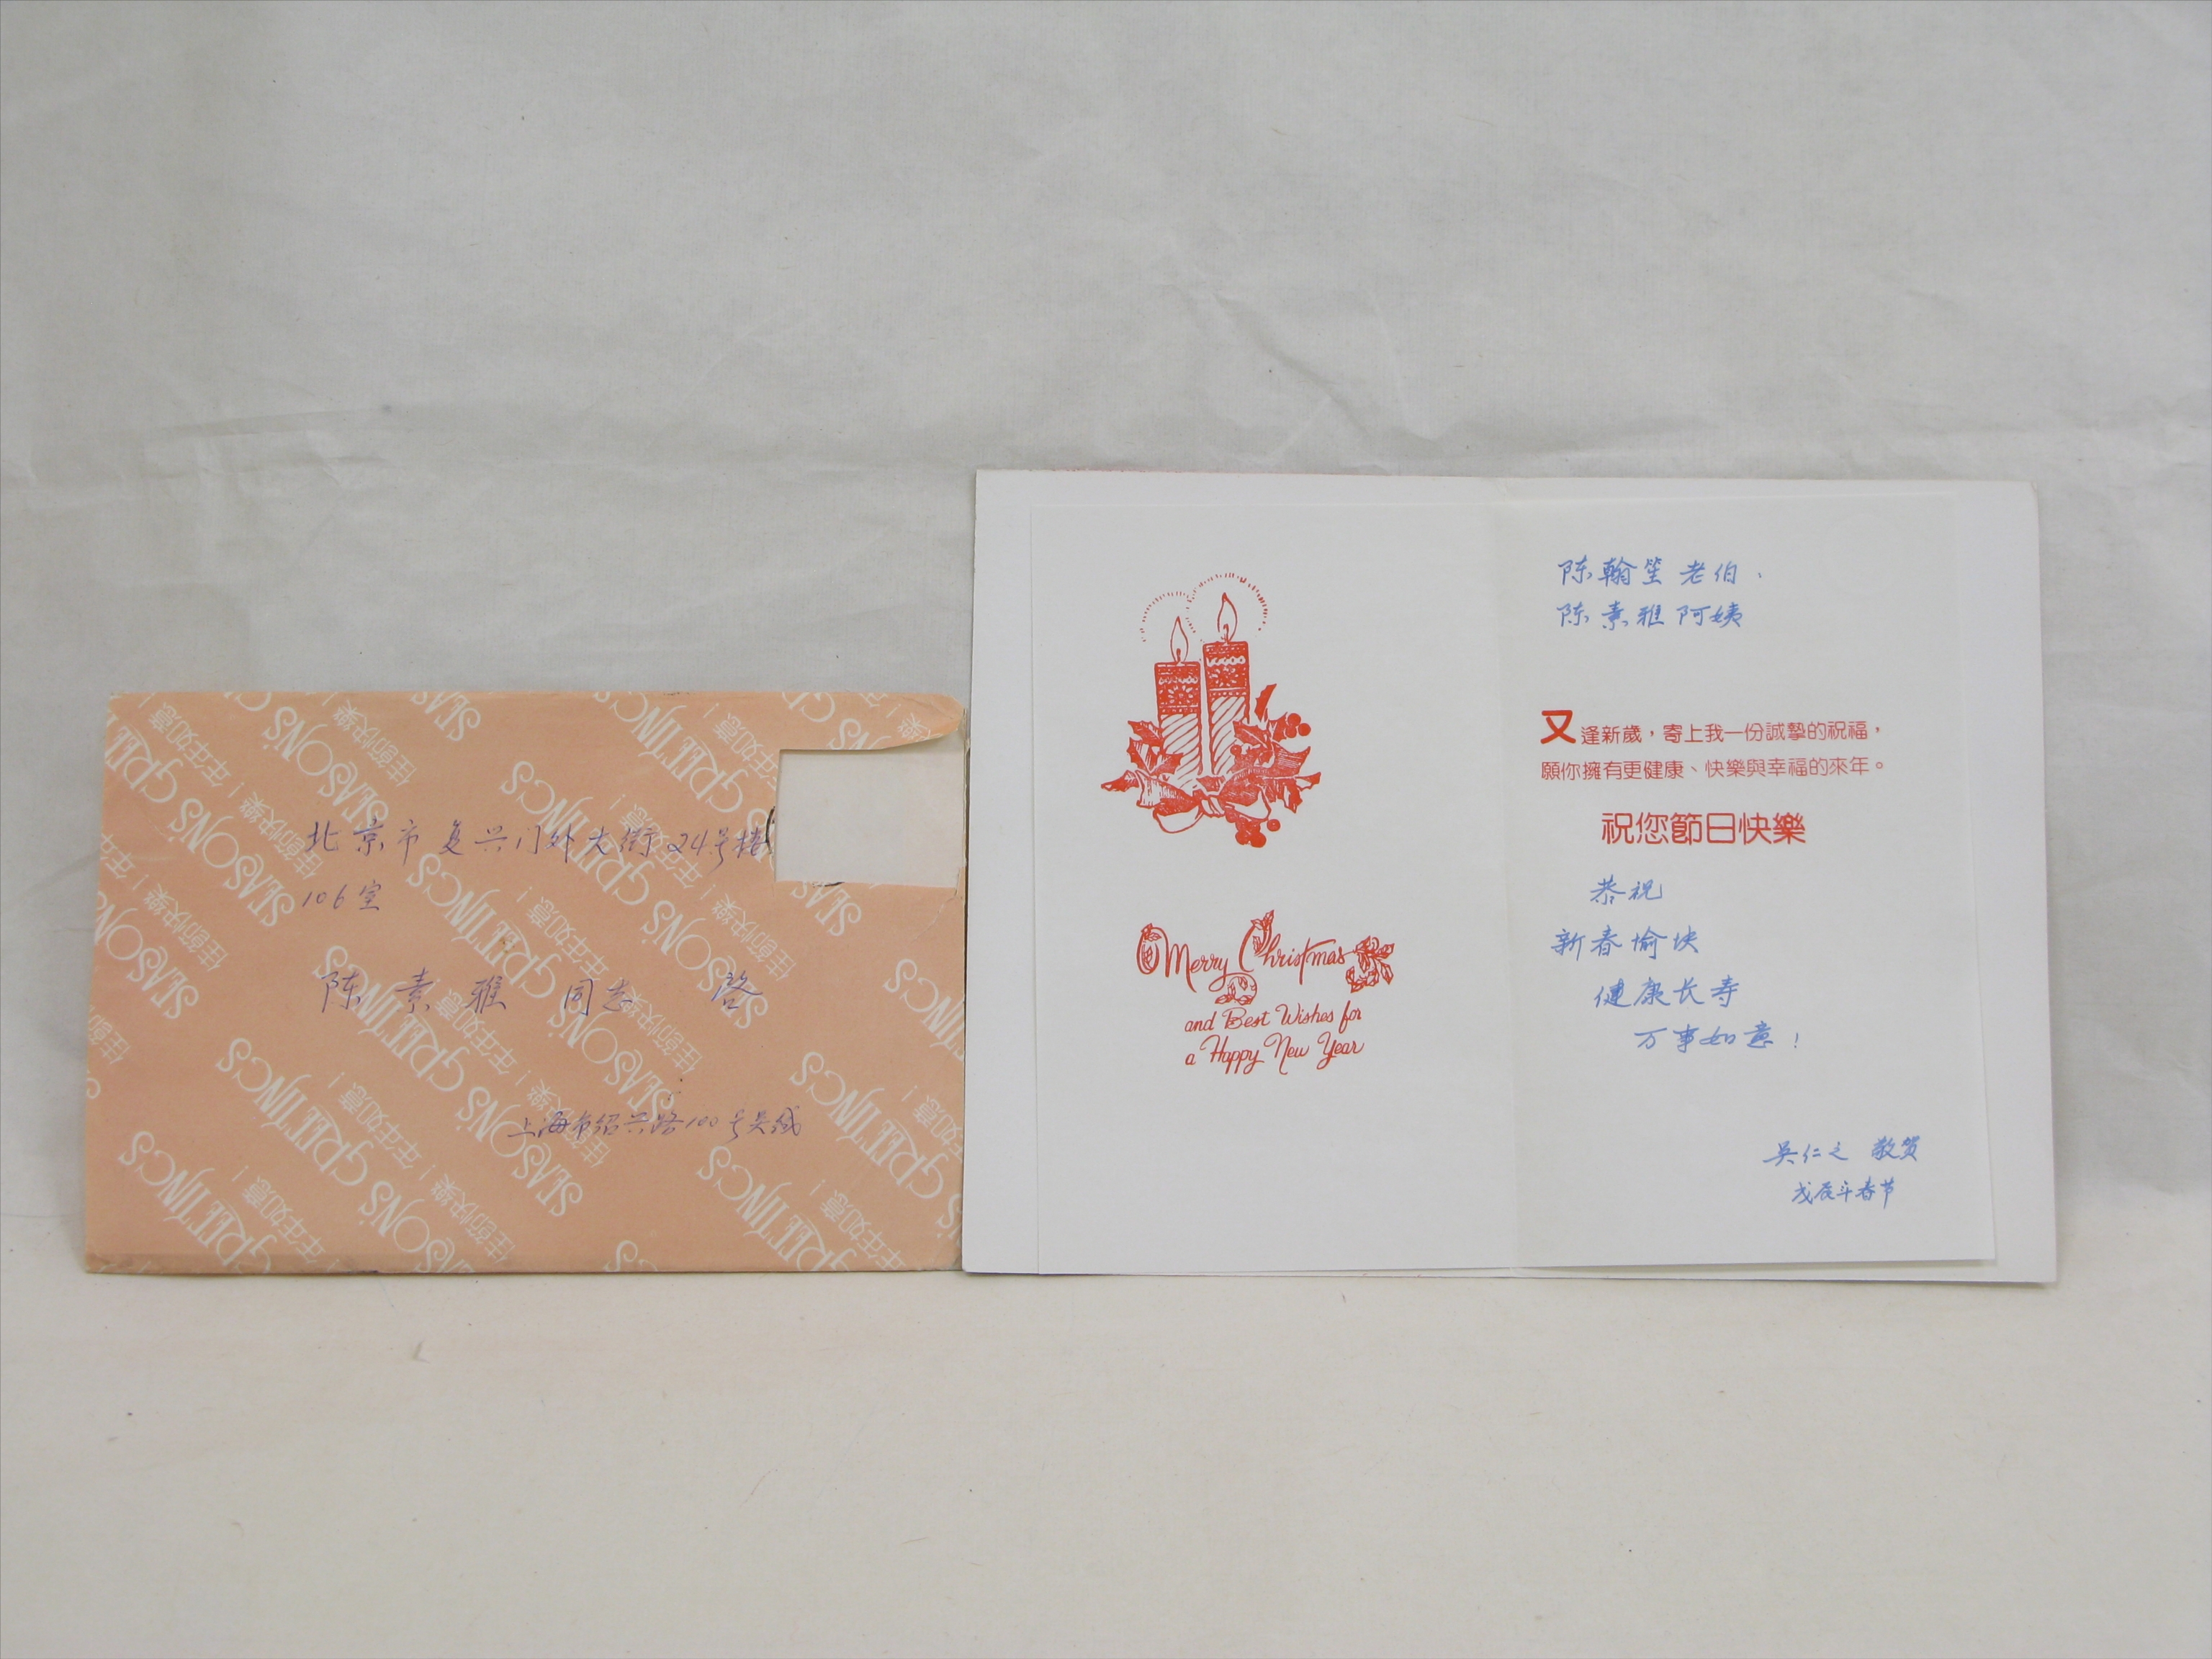 北京市复兴门外大街24号楼
106室
陈素雅 同志 启
上海市绍兴路100号吴缄
SEASONS GREETINGS
佳節快樂!年年如意!
Merry Christmas
and Best Wishes for
a Happy New Year
陈翰笙老伯、
陈素雅阿姨
又逢新歲，寄上我一份誠摯的祝福，
願你擁有更健康、快樂與幸福的來年。
祝您節日快樂
恭祝
新春愉快
健康长寿
万事如意！
吴仁之 敬贺
戊辰年春节